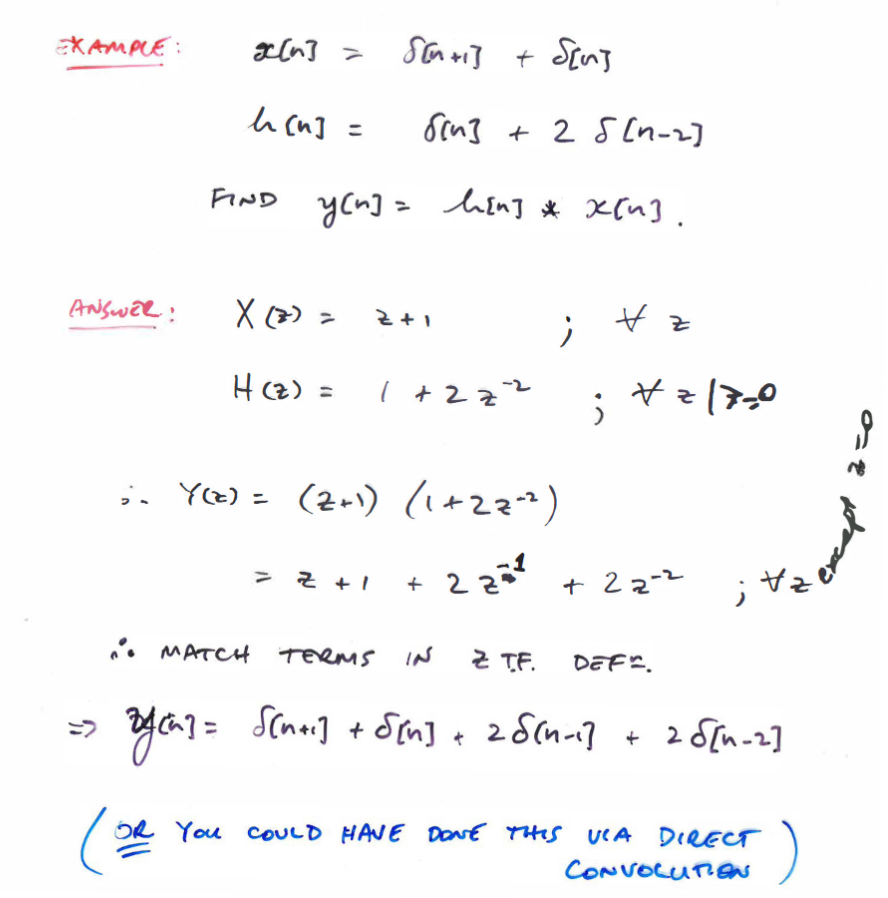 EXAMPLE: x[n] = δ[n+1] + δ[n]
h[n] = δ[n] + 2 δ[n-2]
FIND y[n] = h[n] * x[n].
ANSWER: X(z) = z+1 ; ∀ z
H(z) = 1 + 2z⁻² ; ∀ z | z=0
∴ Y(z) = (z+1) (1+2z⁻²)
= z + 1 + 2z⁻¹ + 2z⁻² ; ∀z except z=0
∴ MATCH TERMS IN Z TF. DEFN.
=> y[n] = δ[n+1] + δ[n] + 2δ[n-1] + 2δ[n-2]
(OR YOU COULD HAVE DONE THIS VIA DIRECT
CONVOLUTION)